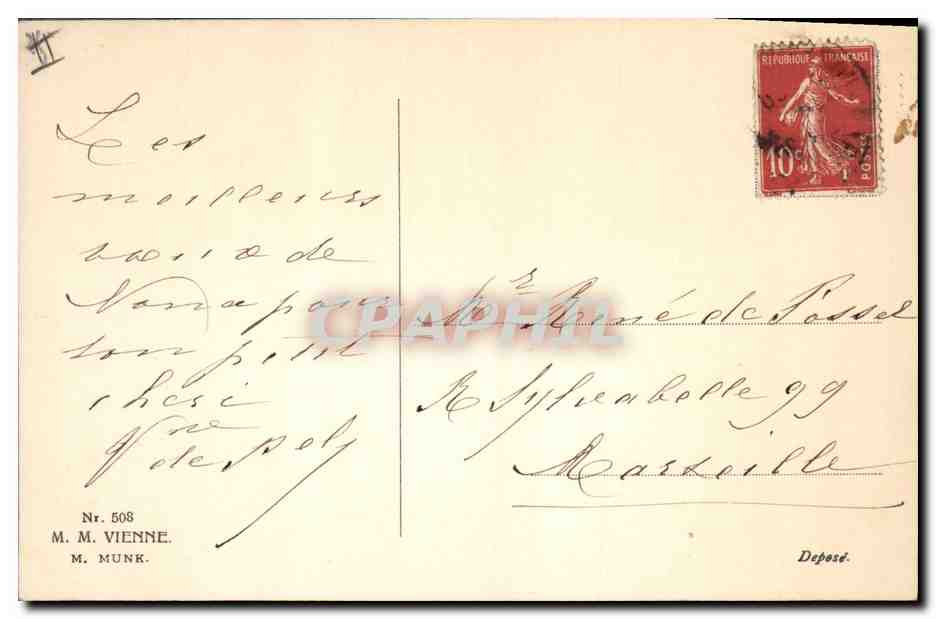 Les
meilleurs
vœux de
Nona pour
son petit
cheri
Vve
de
Nr. 508
M. M. VIENNE.
M. MUNK.
REPUBLIQUE FRANÇAISE
10c
POSTES
CPAPHIL
Mr René de Possel
R Sylvabelle 99
Marseille
Deposé.